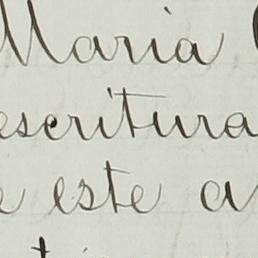 Maria
escritura
este a